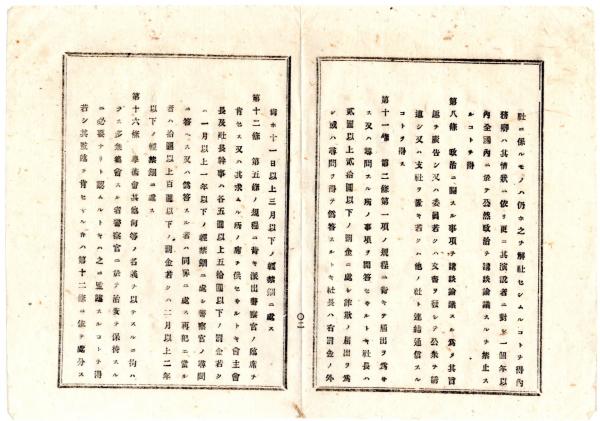 社ニ係ルモノハ仍ホ之ヲ解社セシムルコトヲ得內
務卿ハ其情狀ニ依リ更ニ其演說者ニ對シ一個年以
內全國內ニ於テ公然政治ヲ講談論議スルヲ禁止ス
ルコトヲ得
第八條 政治ニ關スル事項ヲ講談論議スル爲メ其旨
趣ヲ廣告シ又ハ委員若クハ文書ヲ發シテ公衆ヲ誘
導シ又ハ支社ヲ置キ若クハ他ノ社ト連結通信スル
コトヲ得ス
第十一條 第二條第一項ノ規程ニ背キテ屆出ヲ爲サ
ス又ハ尋問スル所ノ事項ヲ開答セサルトキ社長ハ
貳圓以上貳拾圓以下ノ罰金ニ處シ詐欺ノ屆出ヲ爲
シ或ハ尋問ヲ得テ僞答スルトキ社長ハ右罰金ノ外
尙ホ十一日以上三月以下ノ輕禁錮ニ處ス
第十二條 第五條ノ規程ニ背キ派出警察官ノ臨席ヲ
肯セス又ハ其求ムル所ノ席ヲ供セサルトキ會主會
長及社長幹事ハ各五圓以上五拾圓以下ノ罰金若ク
ハ一月以上一年以下ノ輕禁錮ニ處シ警察官ノ尋問
ニ答ヘス又ハ僞答スル者ハ同罪ニ處ス再犯ニ當ル
者ハ拾圓以上百圓以下ノ罰金若クハ二月以上二年
以下ノ輕禁錮ニ處ス
第十六條 學術會其他何等ノ名義ヲ以テスルニ拘ハ
ラス多衆集會スル者警察官ニ於テ治安ヲ保持スル
ニ必要ナリト認ムルトキハ之ニ監臨スルコトヲ得
若シ其監臨ヲ肯セサルトキハ第十二條ニ依テ處分ス
〇二